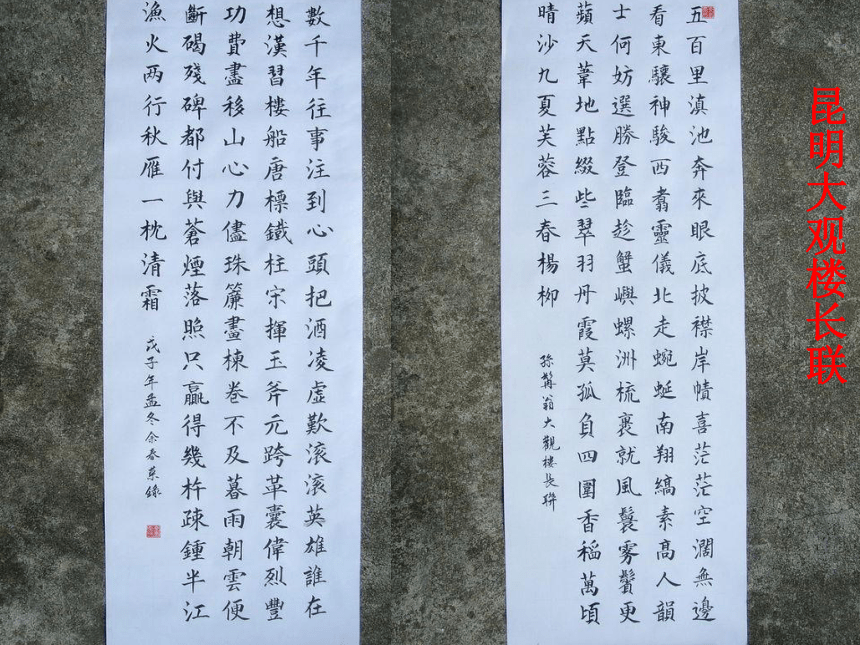 昆明大观楼长联
五百里滇池奔來眼底披襟岸幘喜茫茫空濶無邊
看東驤神駿西翥靈儀北走蜿蜒南翔縞素高人韻
士何妨選勝登臨趁蟹嶼螺洲梳裹就風鬟雾鬢更
蘋天葦地點綴些翠羽丹霞莫孤負四圍香稻萬頃
晴沙九夏芙蓉三春楊栁
孫髯翁大觀樓長聨
數千年往事注到心頭把酒凌虛歎滚滚英雄誰在
想漢習樓船唐標鐵柱宋揮玉斧元跨革囊偉烈豐
功費盡移山心力儘珠簾畫棟卷不及暮雨朝雲便
斷碣殘碑都付與蒼煙落照只贏得幾杵疎鍾半江
漁火两行秋雁一枕清霜
戊子年孟冬余春錄